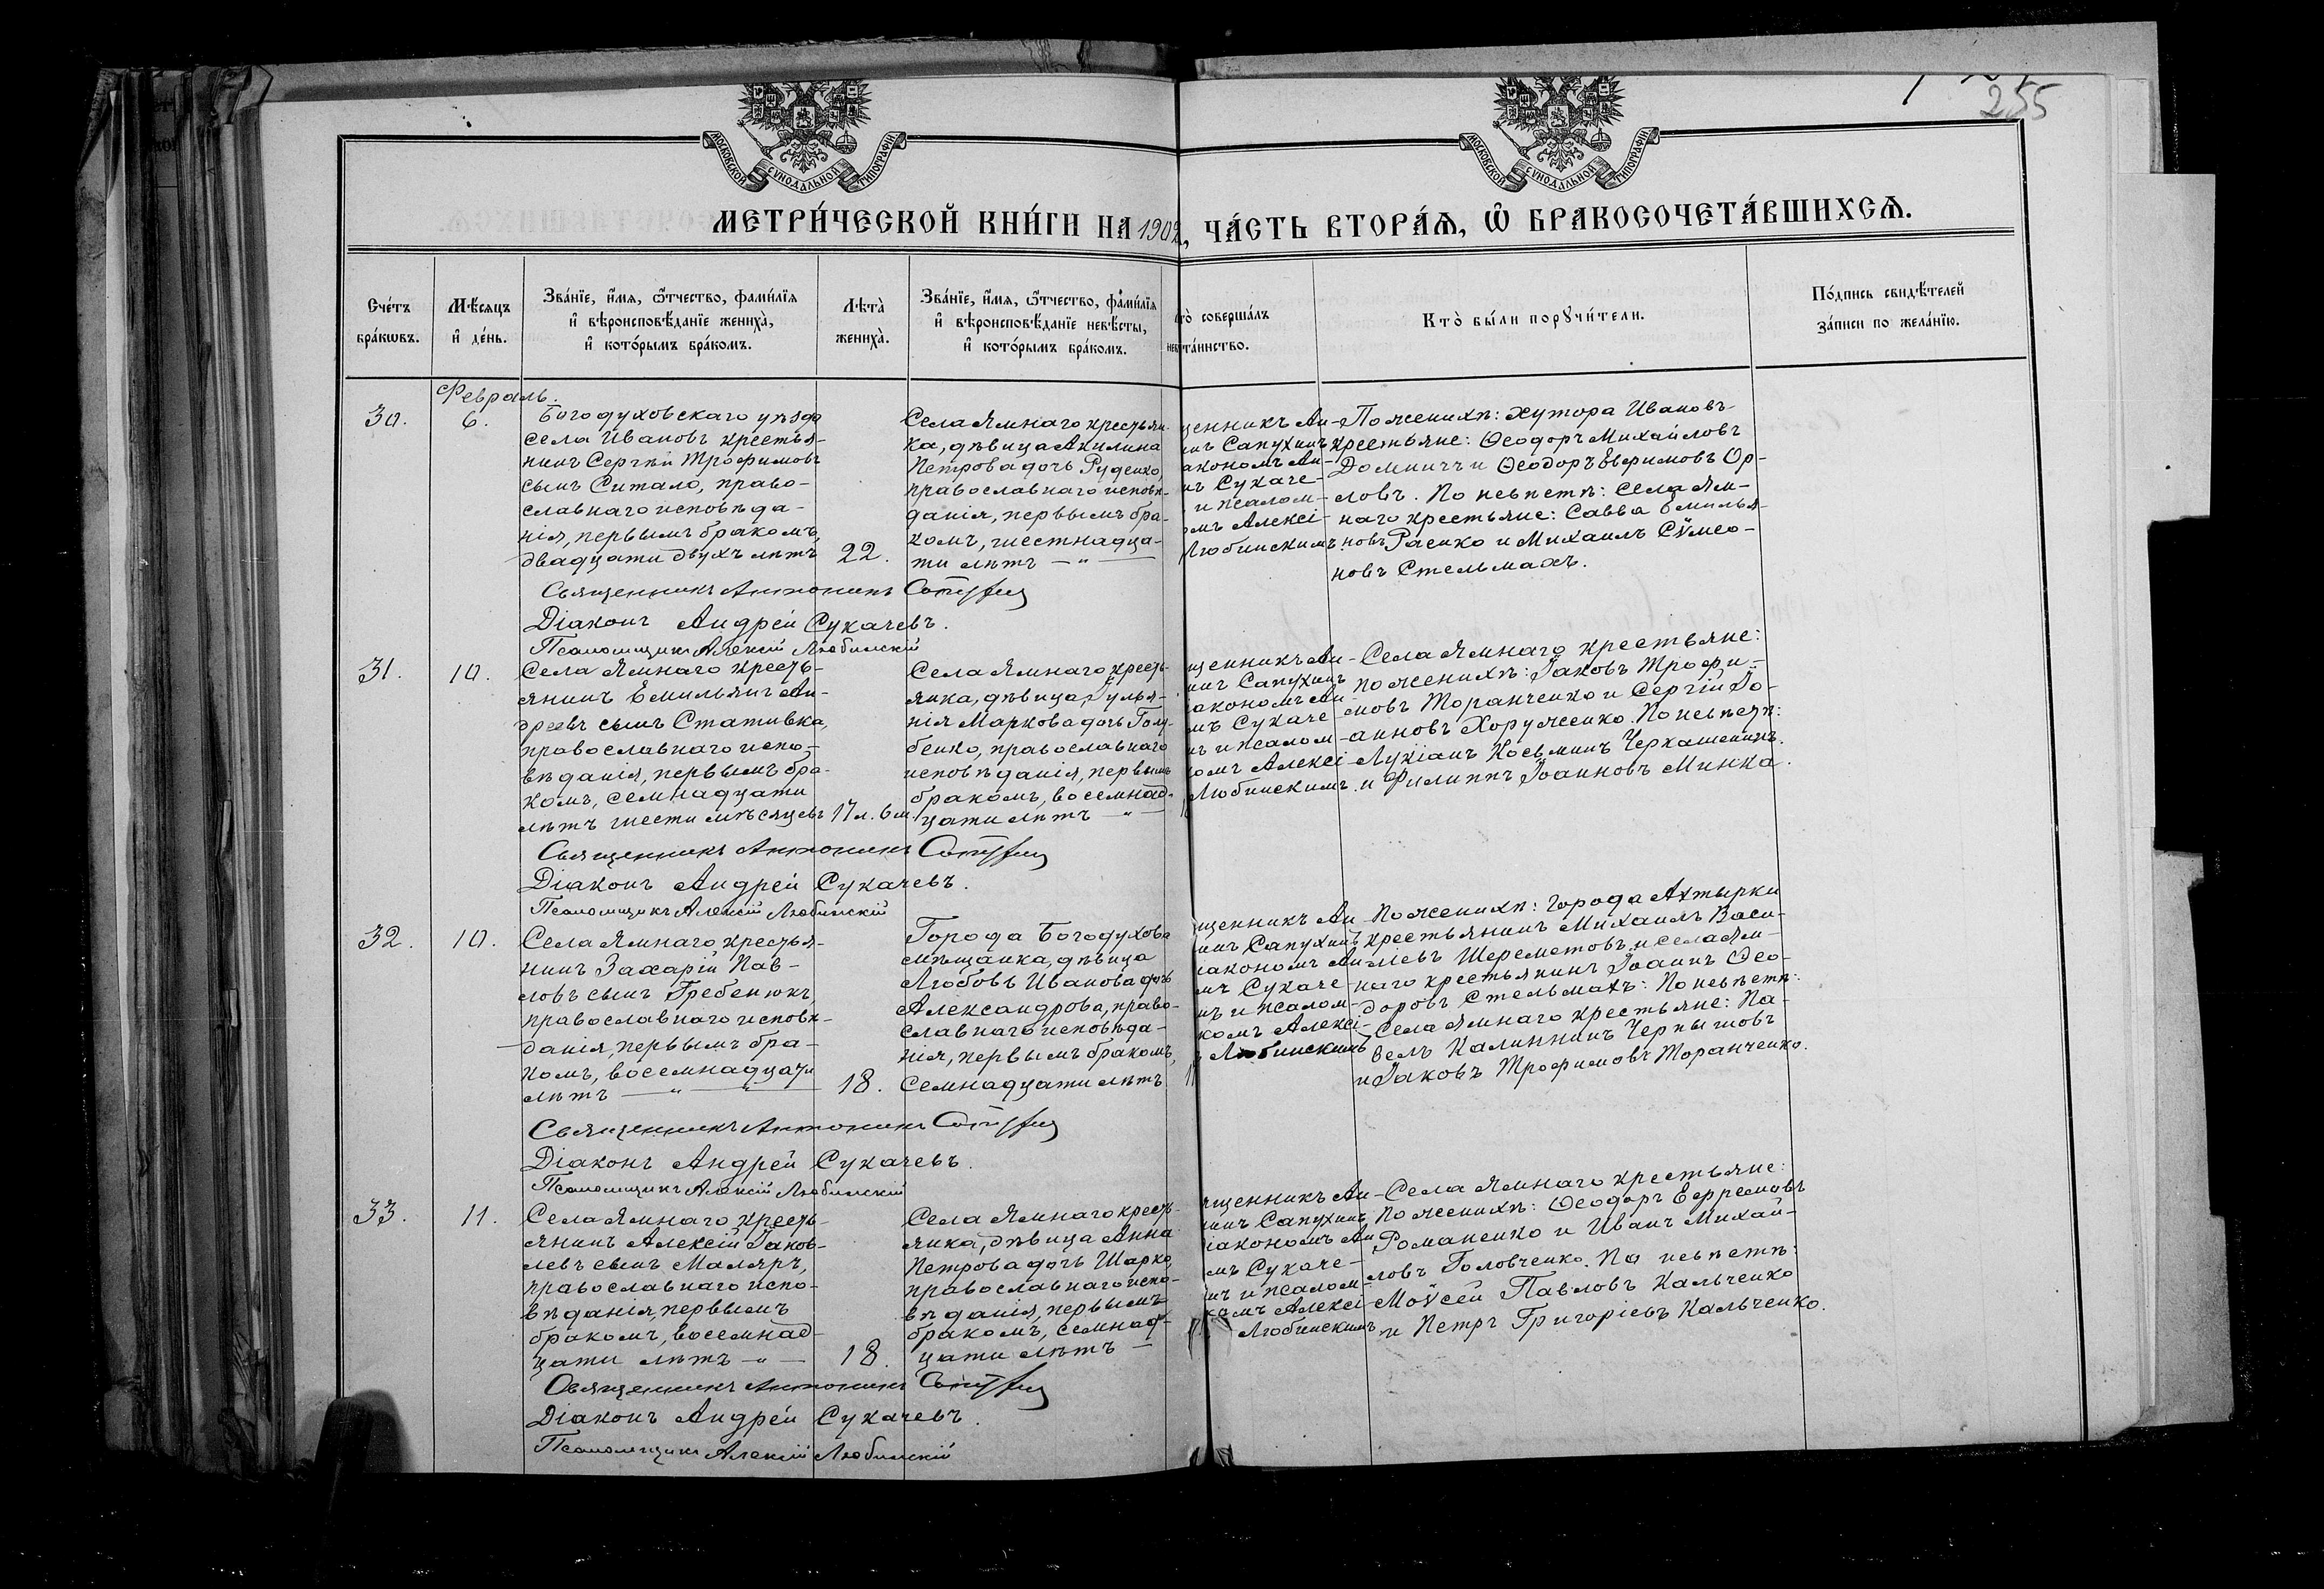 255
МОСКОВСКОЙ СѴНОДАЛЬНОЙ ТИПОГРАФІИ
МОСКОВСКОЙ СѴНОДАЛЬНОЙ ТИПОГРАФІИ
МЕТРИ́ЧЕСКОЙ КНИ́ГИ НА 1902, ЧА́СТЬ ВТОРА́Ѧ, Ѽ БРАКОСОЧЕТА́ВШИХСѦ.
Сче́тъ
бра́кѡвъ.
Мѣ́сяцъ
и҆ де́нь.
Зва́нїе, и҆́мя, ѻ҆́тчество, фами́лїя
и҆ вѣроисповѣ́данїе жениха̀,
и҆ кото́рымъ бра́комъ.
Лѣ́та
жениха̀.
Зва́нїе, и҆́мя, ѻ҆́тчество, фами́лїя
и҆ вѣроисповѣ́данїе невѣ́сты,
и҆ кото́рымъ бра́комъ.
то̀ соверша́лъ
та́инство.
Кто̀ бы́ли порꙋчи́тели.
По́дпись свидѣ́телей
за́писи по жела́нїю.
Февраль.
30.
6.
Богодуховскаго уѣзда
села Ивановъ крестья-
нинъ Сергѣй Трофимовъ
сынъ Ситало, право-
славнаго исповѣда-
нія, первымъ бракомъ,
двадцати двухъ лѣтъ
22.
Села Ямнаго крестьян-
ка, дѣвица Акилина
Петрова дочь Руденко,
православнаго исповѣ-
данія, первымъ бра-
комъ, шестнадца-
ти лѣтъ — " —
щенникъ Ан-
инъ Сапухинъ
акономъ Ан-
мъ Сукаче-
и псалом-
омъ Алексі-
Любинскимъ
По женихѣ: хутора Ивановъ
крестьяне: Ѳеодоръ Михайловъ
Доминичъ и Ѳеодоръ Евѳимовъ Ор-
ловъ. По невѣстѣ: села Ям-
наго крестьяне: Савва Емилья-
новъ Расенко и Михаилъ Сѵмео-
новъ Стельмахъ.
Священникъ Антонинъ Сапухин
Діаконъ Андрей Сукачевъ.
Псаломщикъ Алексій Любинскій
31.
10.
Села Ямнаго кресть-
янинъ Емильянъ Ан-
дреевъ сынъ Стативка,
православнаго испо-
вѣданія, первымъ бра-
комъ, семнадцати
лѣтъ шести мѣсяцевъ
17 л. 6 м.
Села Ямнаго кресть-
янка, дѣвица, Іулья-
нія Маркова дочь Голу-
бенко, православнаго
исповѣданія, первымъ
бракомъ, восемнад-
цати лѣтъ — " —
щенникъ Ан-
нинъ Сапухинъ
акономъ Ан
мъ Сукаче
ъ и псалом-
омъ Алексі-
Любинскимъ.
Села Ямнаго крестьяне:
по женихѣ: Іаковъ Трофи-
мовъ Торанченко и Сергій Іо-
анновъ Хоруженко. По невѣстѣ:
Лукіанъ Косьминъ Черкашенинъ
и Филиппъ Іоанновъ Минка.
Священникъ Антонинъ Сапухин
Діаконъ Андрей Сукачевъ.
Псаломщикъ Алексій Любинскій
32.
10.
Села Ямнаго крестья-
нинъ Захарій Пав-
ловъ сынъ Гребенюкъ,
православнаго исповѣ-
данія, первымъ бра-
комъ, восемнадцати
лѣтъ — " — " —
18.
Города Богодухова
мѣщанка, дѣвица
Любовь Иванова дочь
Александрова, право-
славнаго исповѣда-
нія, первымъ бракомъ,
семнадцати лѣтъ
щенникъ Ан
нинъ Сапухинъ
акономъ Ан
мъ Сукаче
ъ и псалом-
комъ Алексі-
Любинскимъ
По женихѣ: города Ахтырки
крестьянинъ Михаилъ Васи-
лiевъ Шереметовъ и села Ям-
наго крестьянинъ Іоаннъ Ѳео-
доровъ Стельмахъ: По невѣстѣ:
Села Ямнаго крестьяне: Па-
велъ Калиннинъ Чернышовъ
и Іаковъ Трофимовъ Торанченко.
Священникъ Антонинъ Сапухин
Діаконъ Андрей Сукачевъ.
Псаломщикъ Алексій Любинскій
33.
11.
Села Ямнаго кресть-
янинъ Алексій Іаков-
левъ сынъ Маляръ,
православнаго испо-
вѣданія, первымъ
бракомъ, восемнад-
цати лѣтъ — " —
18.
Села Ямнаго кресть-
янка, дѣвица Анна
Петрова дочь Шарко,
православнаго испо-
вѣданія, первымъ
бракомъ, семнад-
цати лѣтъ —
щенникъ Ан
нинъ Сапухинъ
іакономъ Ан
мъ Сукаче-
ъ и псалом-
комъ Алексі
Любинскимъ
Села Ямнаго крестьяне:
По женихѣ: Ѳеодоръ Ефремовъ
Романенко и Иванъ Михай-
ловъ Головченко. По невѣстѣ:
Моѵсей Павловъ Кальченко
и Петръ Григоріевъ Кальченко.
Священникъ Антонинъ Сапухин
Діаконъ Андрей Сукачевъ.
Псаломщикъ Алексій Любинскій